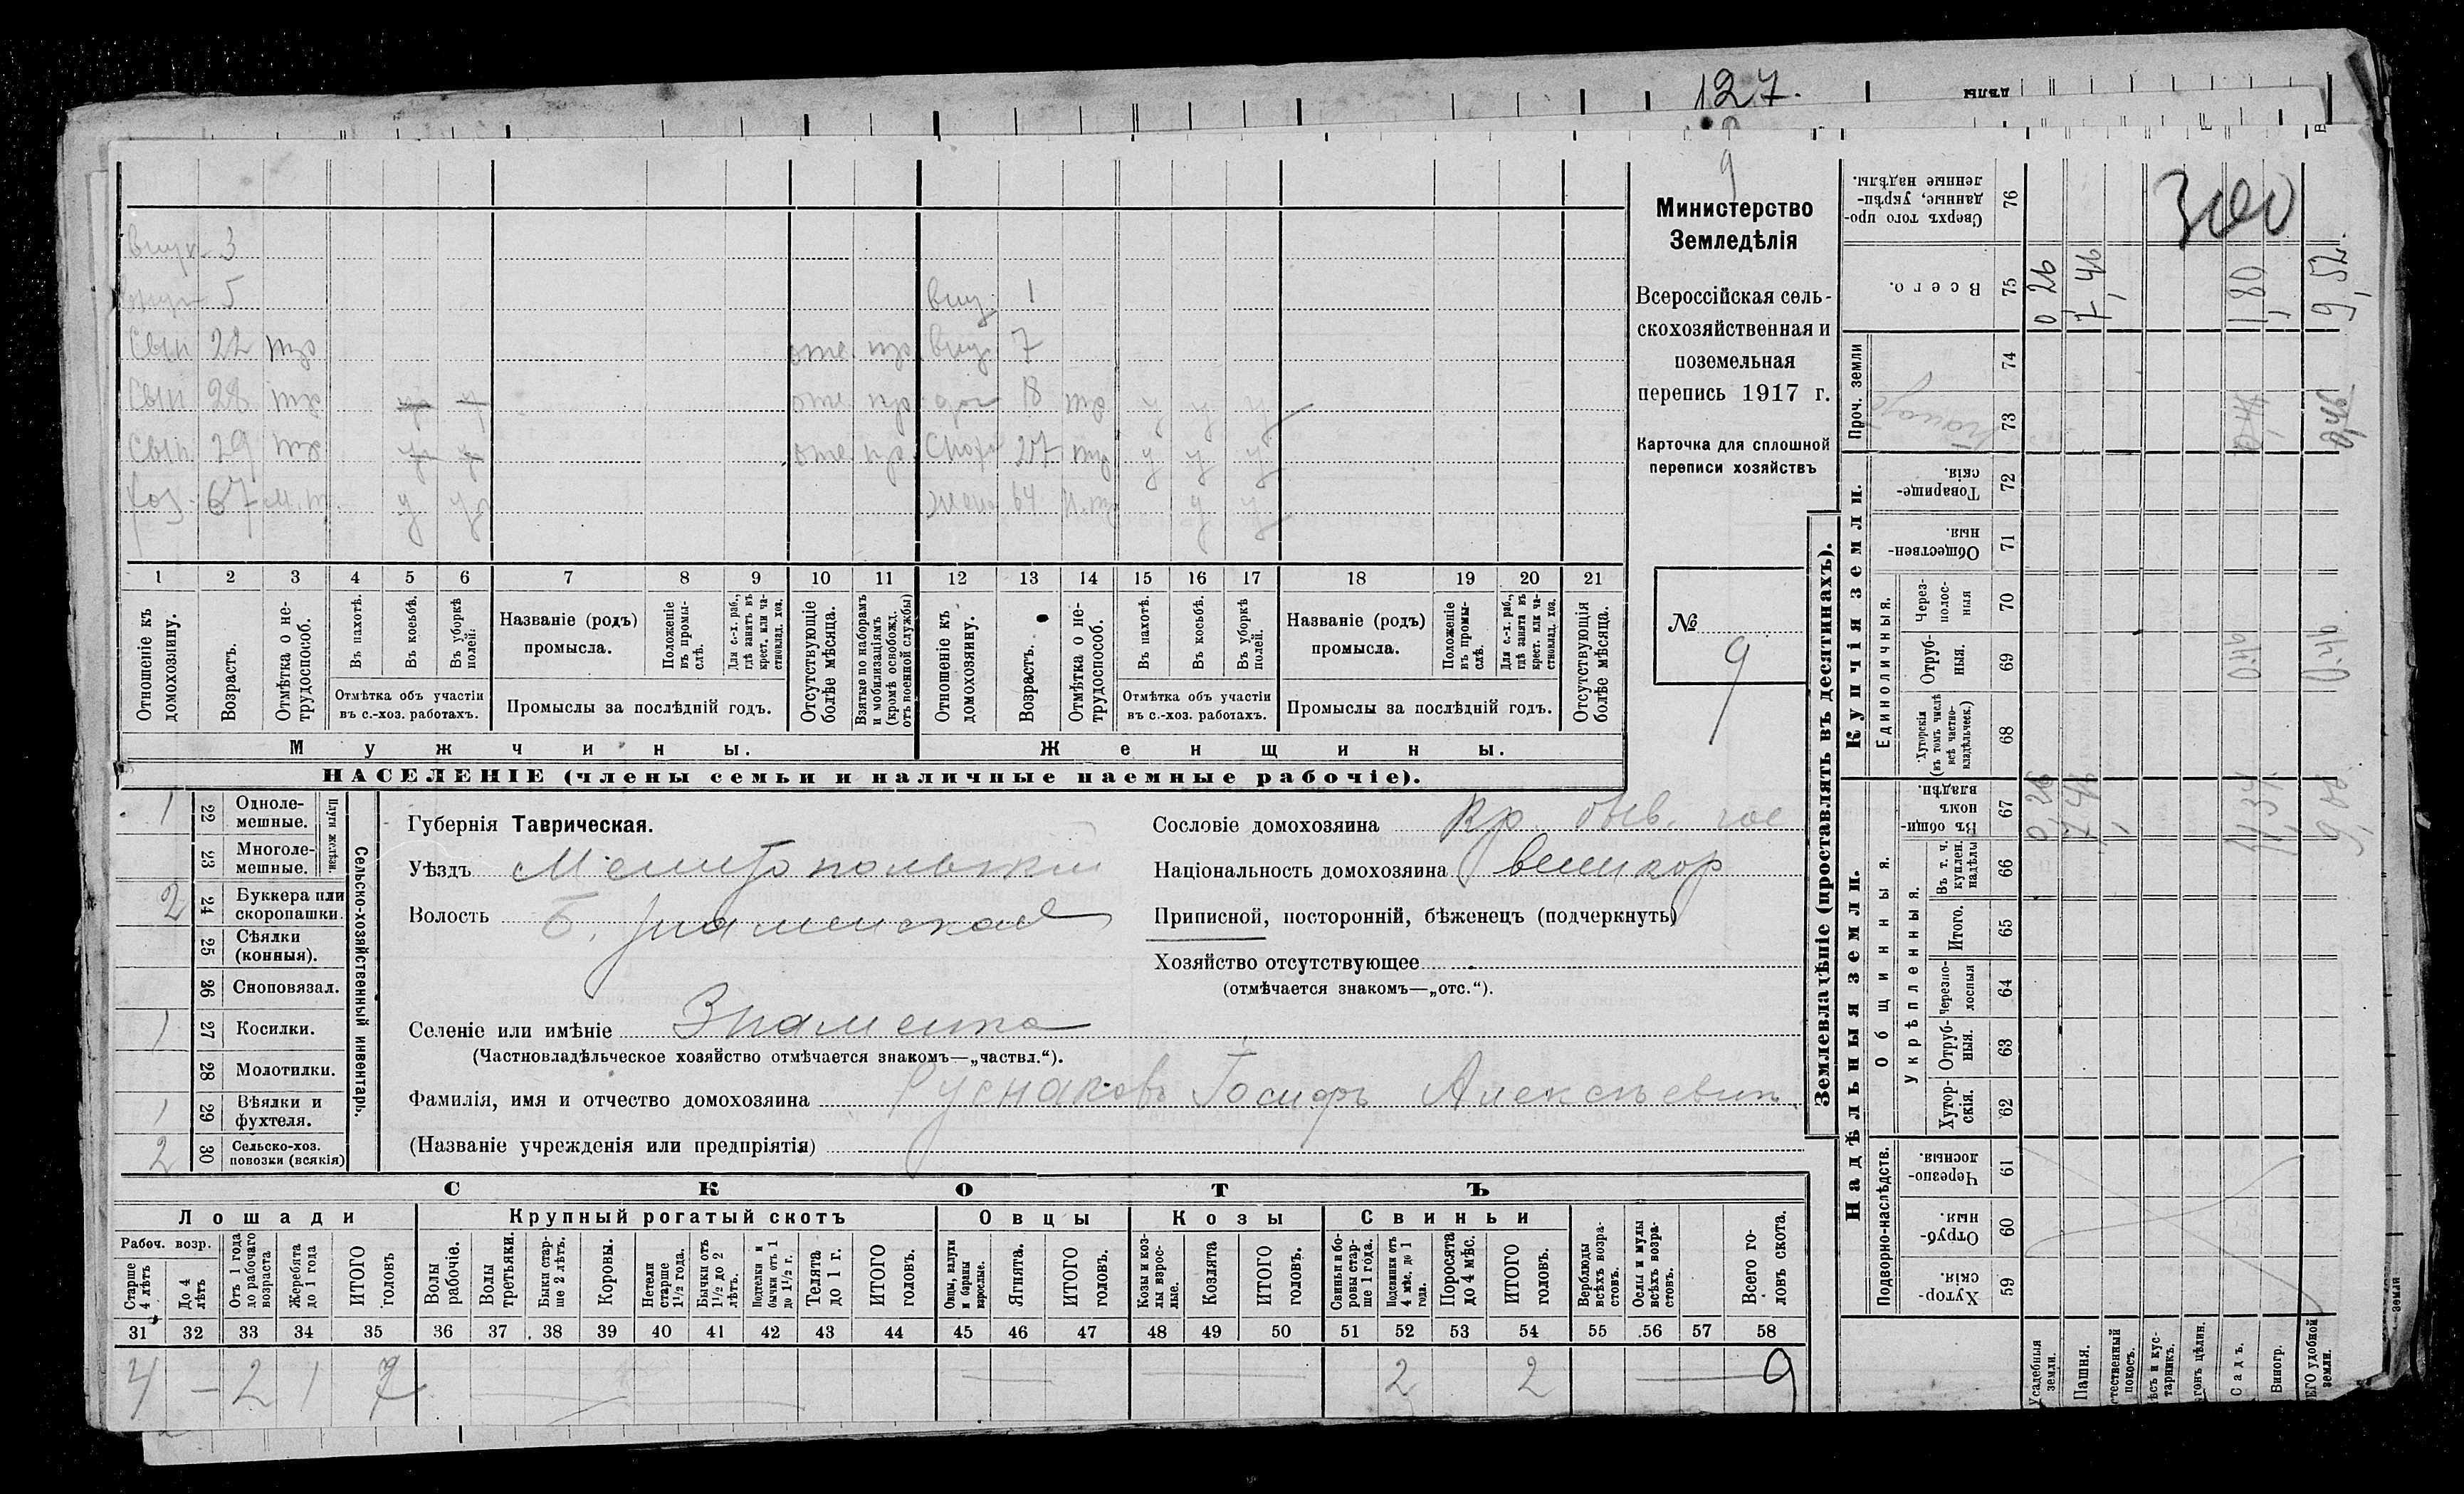 127.
9
300
внук 3
внук 5
вну. 1
Сын 22 тр отс. пр. вну. 7
Сын 28 тр отс. пр. доч 18 тр у у у
Сын 29 тр отс. пр. Сноха 27 тр у у у
Хоз. 67 н. т. у у жена 64 н. т. у у
1 2 3 4 5 6 7 8 9 10 11 12 13 14 15 16 17 18 19 20 21
Отношеніе къ домохозяину.
Возрастъ.
Отмѣтка о не-
трудоспособ.
Въ пахотѣ.
Въ косьбѣ.
Въ уборкѣ полей.
Отмѣтка объ участіи
въ с.-хоз. работахъ.
Названіе (родъ)
промысла.
Положеніе въ промы-
слѣ.
Для с.-х. раб., гдѣ занятъ въ крест. или ча-
стновлад. хоз.
Промыслы за послѣдній годъ.
Отсутствующіе болѣе мѣсяца.
Взятые по наборамъ и мобилизаціямъ (кромѣ освобожд. отъ военной службы)
Отношеніе къ домохозяину.
Возрастъ.
Отмѣтка о не-
трудоспособ.
Въ пахотѣ.
Въ косьбѣ.
Въ уборкѣ полей.
Отмѣтка объ участіи
въ с.-хоз. работахъ.
Названіе (родъ)
промысла.
Положеніе въ промы-
слѣ.
Для с.-х. раб., гдѣ занята въ крест. или ча-
стновлад. хоз.
Промыслы за послѣдній годъ.
Отсутствующія болѣе мѣсяца.
Мужчины.
Женщины.
НАСЕЛЕНІЕ (члены семьи и наличные наемные рабочіе).
Министерство
Земледѣлія
Всероссійская сель-
скохозяйственная и
поземельная
перепись 1917 г.
Карточка для сплошной
переписи хозяйствъ
№
9
1 22 Одноле-
мешные.
23 Многоле-
мешные.
Плуги желѣзн.
2 24 Буккера или
скоропашки.
25 Сѣялки
(конныя).
26 Сноповязал.
1 27 Косилки.
28 Молотилки.
1 29 Вѣялки и
фухтеля.
2 30 Сельско-хоз.
повозки (всякія)
Сельско-хозяйственный инвентарь.
Губернія Таврическая.
Уѣздъ Мелитопольскій
Волость Б. Знаменская
Селеніе или имѣніе Знаменка
(Частновладѣльческое хозяйство отмѣчается знакомъ—„частвл.“).
Фамилія, имя и отчество домохозяина Руснаковъ Іосифъ Алексѣевич.
(Названіе учрежденія или предпріятія)
Сословіе домохозяина Кр. быв. гос
Національность домохозяина великор
Приписной, посторонній, бѣженецъ (подчеркнуть)
Хозяйство отсутствующее
(отмѣчается знакомъ—„отс.“).
СКОТЪ
Лошади
Крупный рогатый скотъ
Овцы
Козы
Свиньи
Рабоч. возр.
Старше 4 лѣтъ
До 4 лѣтъ
Отъ 1 года до рабочаго возраста
Жеребята до 1 года
ИТОГО головъ
Волы рабочіе.
Волы третьяки.
Быки стар-
ше 2 лѣтъ.
Коровы.
Нетели старше 1½ года.
Бычки отъ 1½ до 2 лѣтъ.
Подтелки и бычки отъ 1 до 1½ г.
Телята до 1 г.
ИТОГО головъ.
Овцы, валухи и бараны взрослые.
Ягнята.
ИТОГО головъ.
Козы и коз-
лы взрос-
лые.
Козлята
ИТОГО головъ.
Свиньи и бо-
ровы стар-
ше 1 года.
Подсвинки отъ 4 мѣс. до 1 года.
Поросята до 4 мѣс.
ИТОГО головъ.
Верблюды всѣхъ возра-
стовъ.
Ослы и мулы всѣхъ возра-
стовъ.
Всего го-
ловъ скота.
31 32 33 34 35 36 37 38 39 40 41 42 43 44 45 46 47 48 49 50 51 52 53 54 55 56 57 58
4 — 2 1 7 2 2 9
Землевладѣніе (проставлять въ десятинахъ).
Надѣльныя земли.
Купчія земли.
Проч. земли
Подворно-наслѣдств.
Общинныя.
Укрѣпленныя.
Единоличныя.
Сверхъ того про-
данные, укрѣп-
ленные надѣлы. 76
Всего. 75 0 26 7,46 1,80 9,52.
74
73
Товарище-
скія. 72
Обществен-
ныя. 71
Через-
полос-
ныя 70
Отруб-
ныя. 69 0,46 0,46
Хуторскія
(въ томъ числѣ всѣ частно-
владѣльческ.) 68
Въ общи-
номъ
владѣн. 67 0,26 7,46 1,34
Въ т. ч. куплен. надѣлы 66
Итого. 65
Черезпо-
лосныя 64
Отруб-
ныя. 63
Хутор-
скія. 62
Черезпо-
лосныя. 61
Отруб-
ныя. 60
Хутор-
скія. 59
Усадебныя земли.
Пашня.
Садъ.
Виногр.